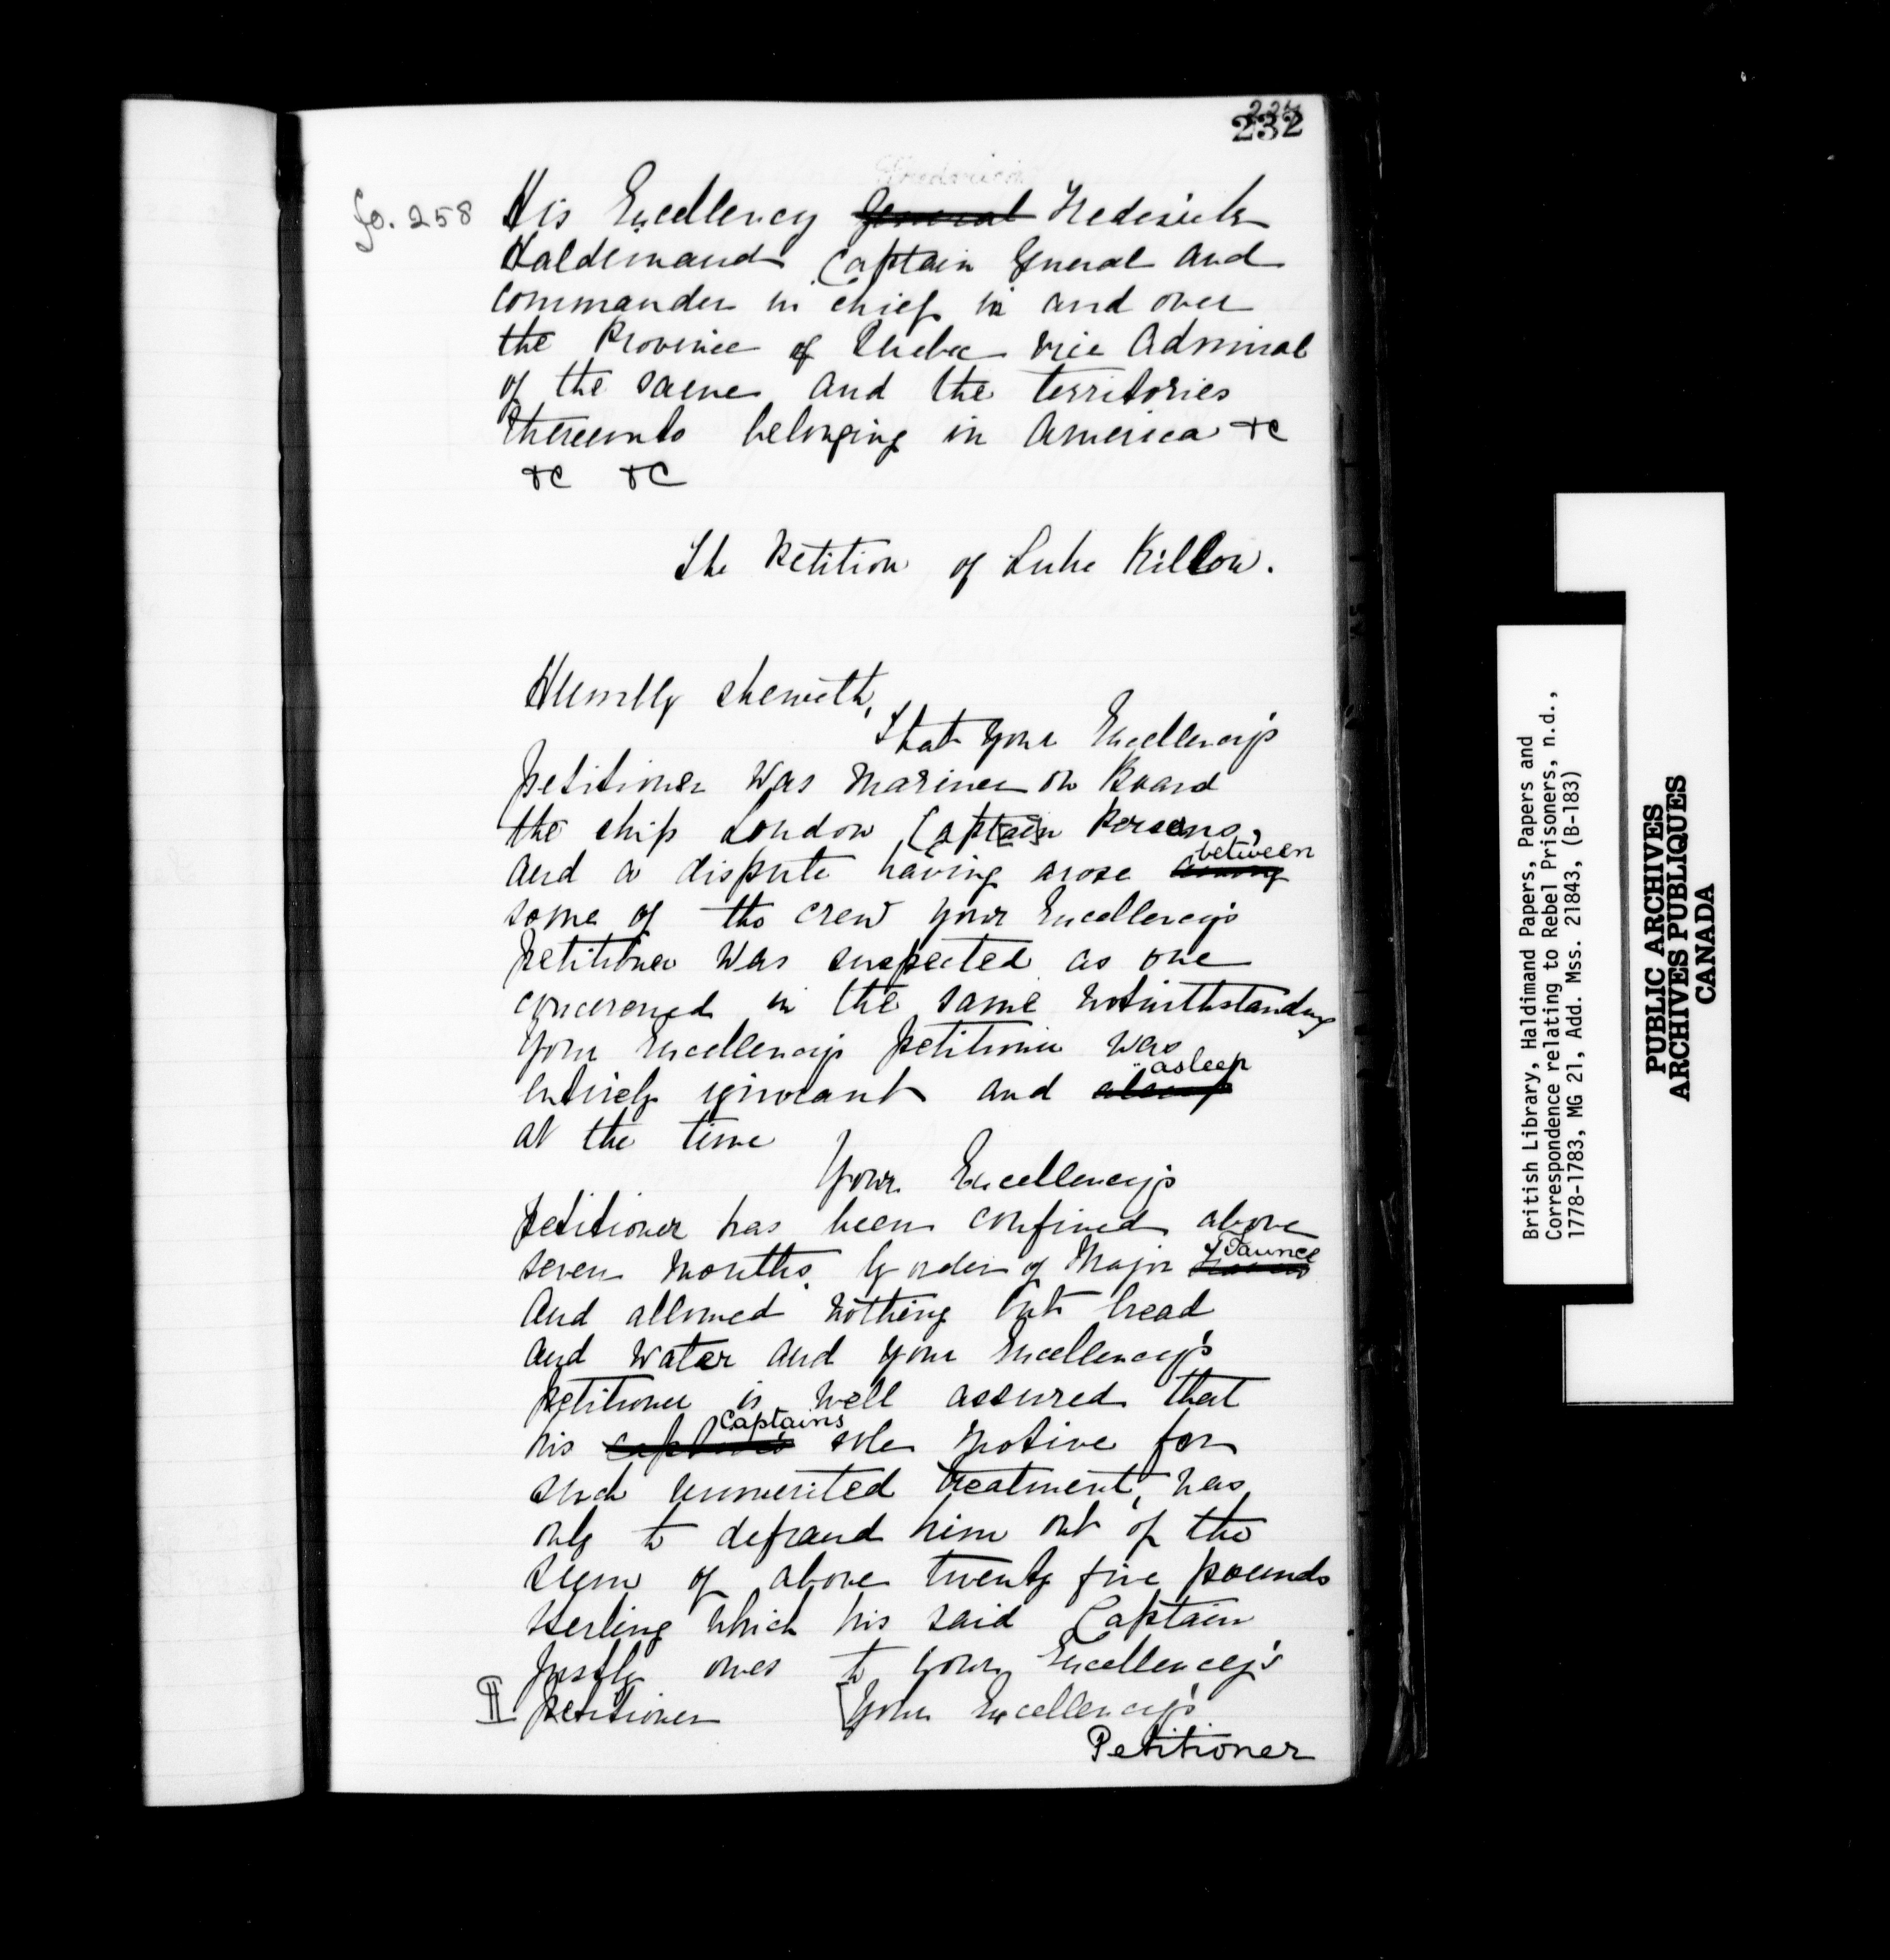 232
fo. 258
His Excellency General Frederick
Haldimand Captain General and
commander in chief in and over
the Province of Quebec vice Admiral
of the same and the territories
thereunto belonging in America &c
&c &c
The Petition of Luke Killow.
Humbly sheweth,
That your Excellency's
petitioner was Mariner on Board
the ship London Capt[ai]n Persons,
and a dispute having arose among between
some of the crew your Excellency's
petitioner was suspected as one
concerned in the same notwithstanding
your Excellency's petitioner was
entirely ignorant and asleep
at the time
Your Excellency's
Petitioner has been confined above
seven months by order of Major Faunce
and allowed nothing but bread
and water and your Excellency's
petitioner is well assured that
his captains sole motive for
such unmerited treatment, was
only to defraud him out of the
sum of above twenty five pounds
sterling which his said Captain
justly owes to your Excellency's
petitioner [Your Excellency's
Petitioner
British Library, Haldimand Papers, Papers and
Correspondence relating to Rebel Prisoners, n.d.,
1778-1783, MG 21, Add. Mss. 21843, (B-183)
PUBLIC ARCHIVES
ARCHIVES PUBLIQUES
CANADA